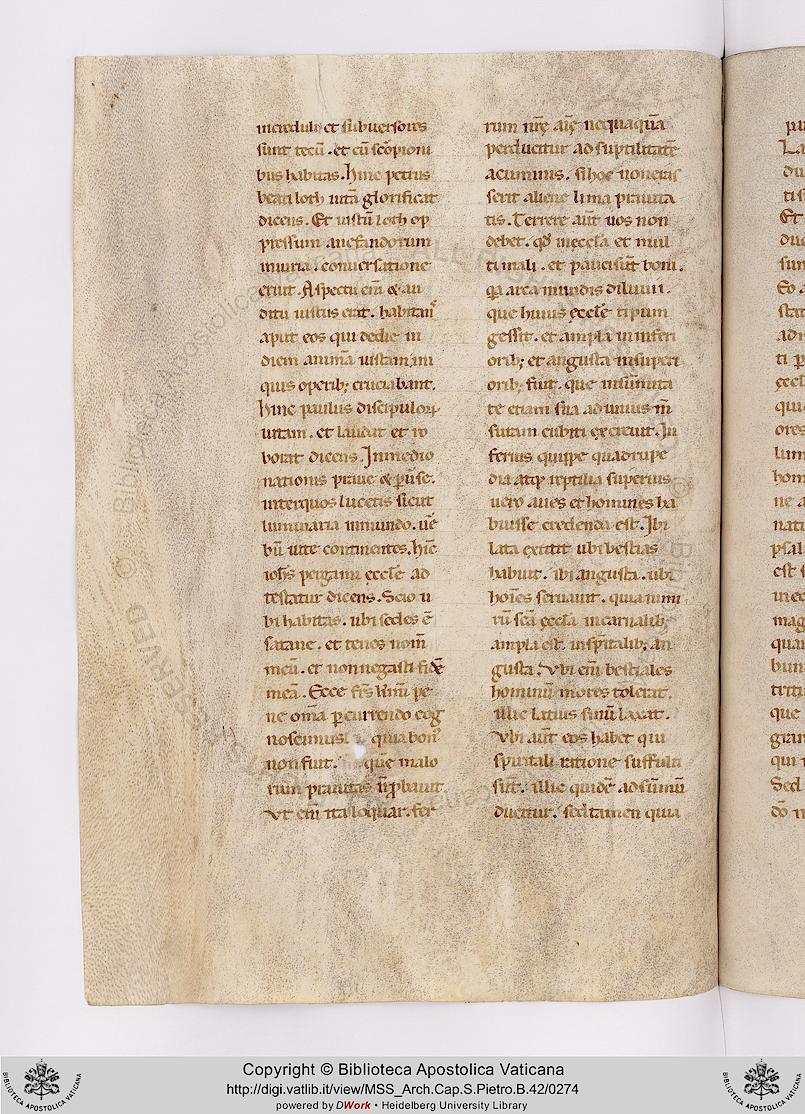 increduli et subuersores
sunt tecū . et cū scorpioni
bus habitas. Hinc petrus
beati loth uitā glorificat
dicens. Et iustū loth op
pressum a nefandorum
iniuria . conuersatione
eruit. Aspectu eīn & au
ditu iustus erat. habitans
aput eos qui de die in
diem animā iustam ini
quis operib; cruciabant.
Hinc paulus discipulorꝝ
uitam . et laudat et ro
borat dicens. In medio
nationis praue & ꝑuse.
inter quos lucetis sicut
luminaria in mundo. uē
bū uite continentes. hīc
iohs pergami eccle ad
testatur dicens. Scio u
bi habitas. ubi sedes ē
satane. et tenes nom̄
meū. et non negasti fidē
meā. Ecce frs kmi pe
ne om̄a ꝑcurrendo cog
nouimus quia bon'
non fuit. quē malo
rum prauitas n̄ ꝓbauit.
Vt eīn ita loquar. fer
rum nrę aīę nequaquā
perducitur ad suptilitatē
acuminis. si hoc non eras
serit aliene lima prauita
tis. Terrere aūt uos non
debet. qđ in ęccla et mul
ti mali . et pauci sūt boni.
Qa arca in undis diluuii.
que huius ęccle tipum
gessit. et ampla in inferi
orib; et angusta in superi
orib; fuit. que in sūmita
te etiam sua ad unius m̄
suram cubiti excreuit. In
ferius quippe quadrupe
dia atq; reptilia superius
uero aues et homines ha
buisse credenda est. Ibi
lata extitit ubi bestias
habuit. ibi angusta. ubi
hoīes seruauit. quia nimi
rū scā ęccla in carnalib;
ampla est. in spiritalib; an
gusta. Vbi eīn bestiales
hominū mores tolerat.
illic latius sinū laxat.
Vbi aūt eos habet qui
spiritali ratione suffulti
sūt. illic quidē ad sūmū
ducitur. sed tamen quia
Copyright © Biblioteca Apostolica Vaticana
http://digi.vatlib.it/view/MSS_Arch.Cap.S.Pietro.B.42/0274
powered by DWork • Heidelberg University Library